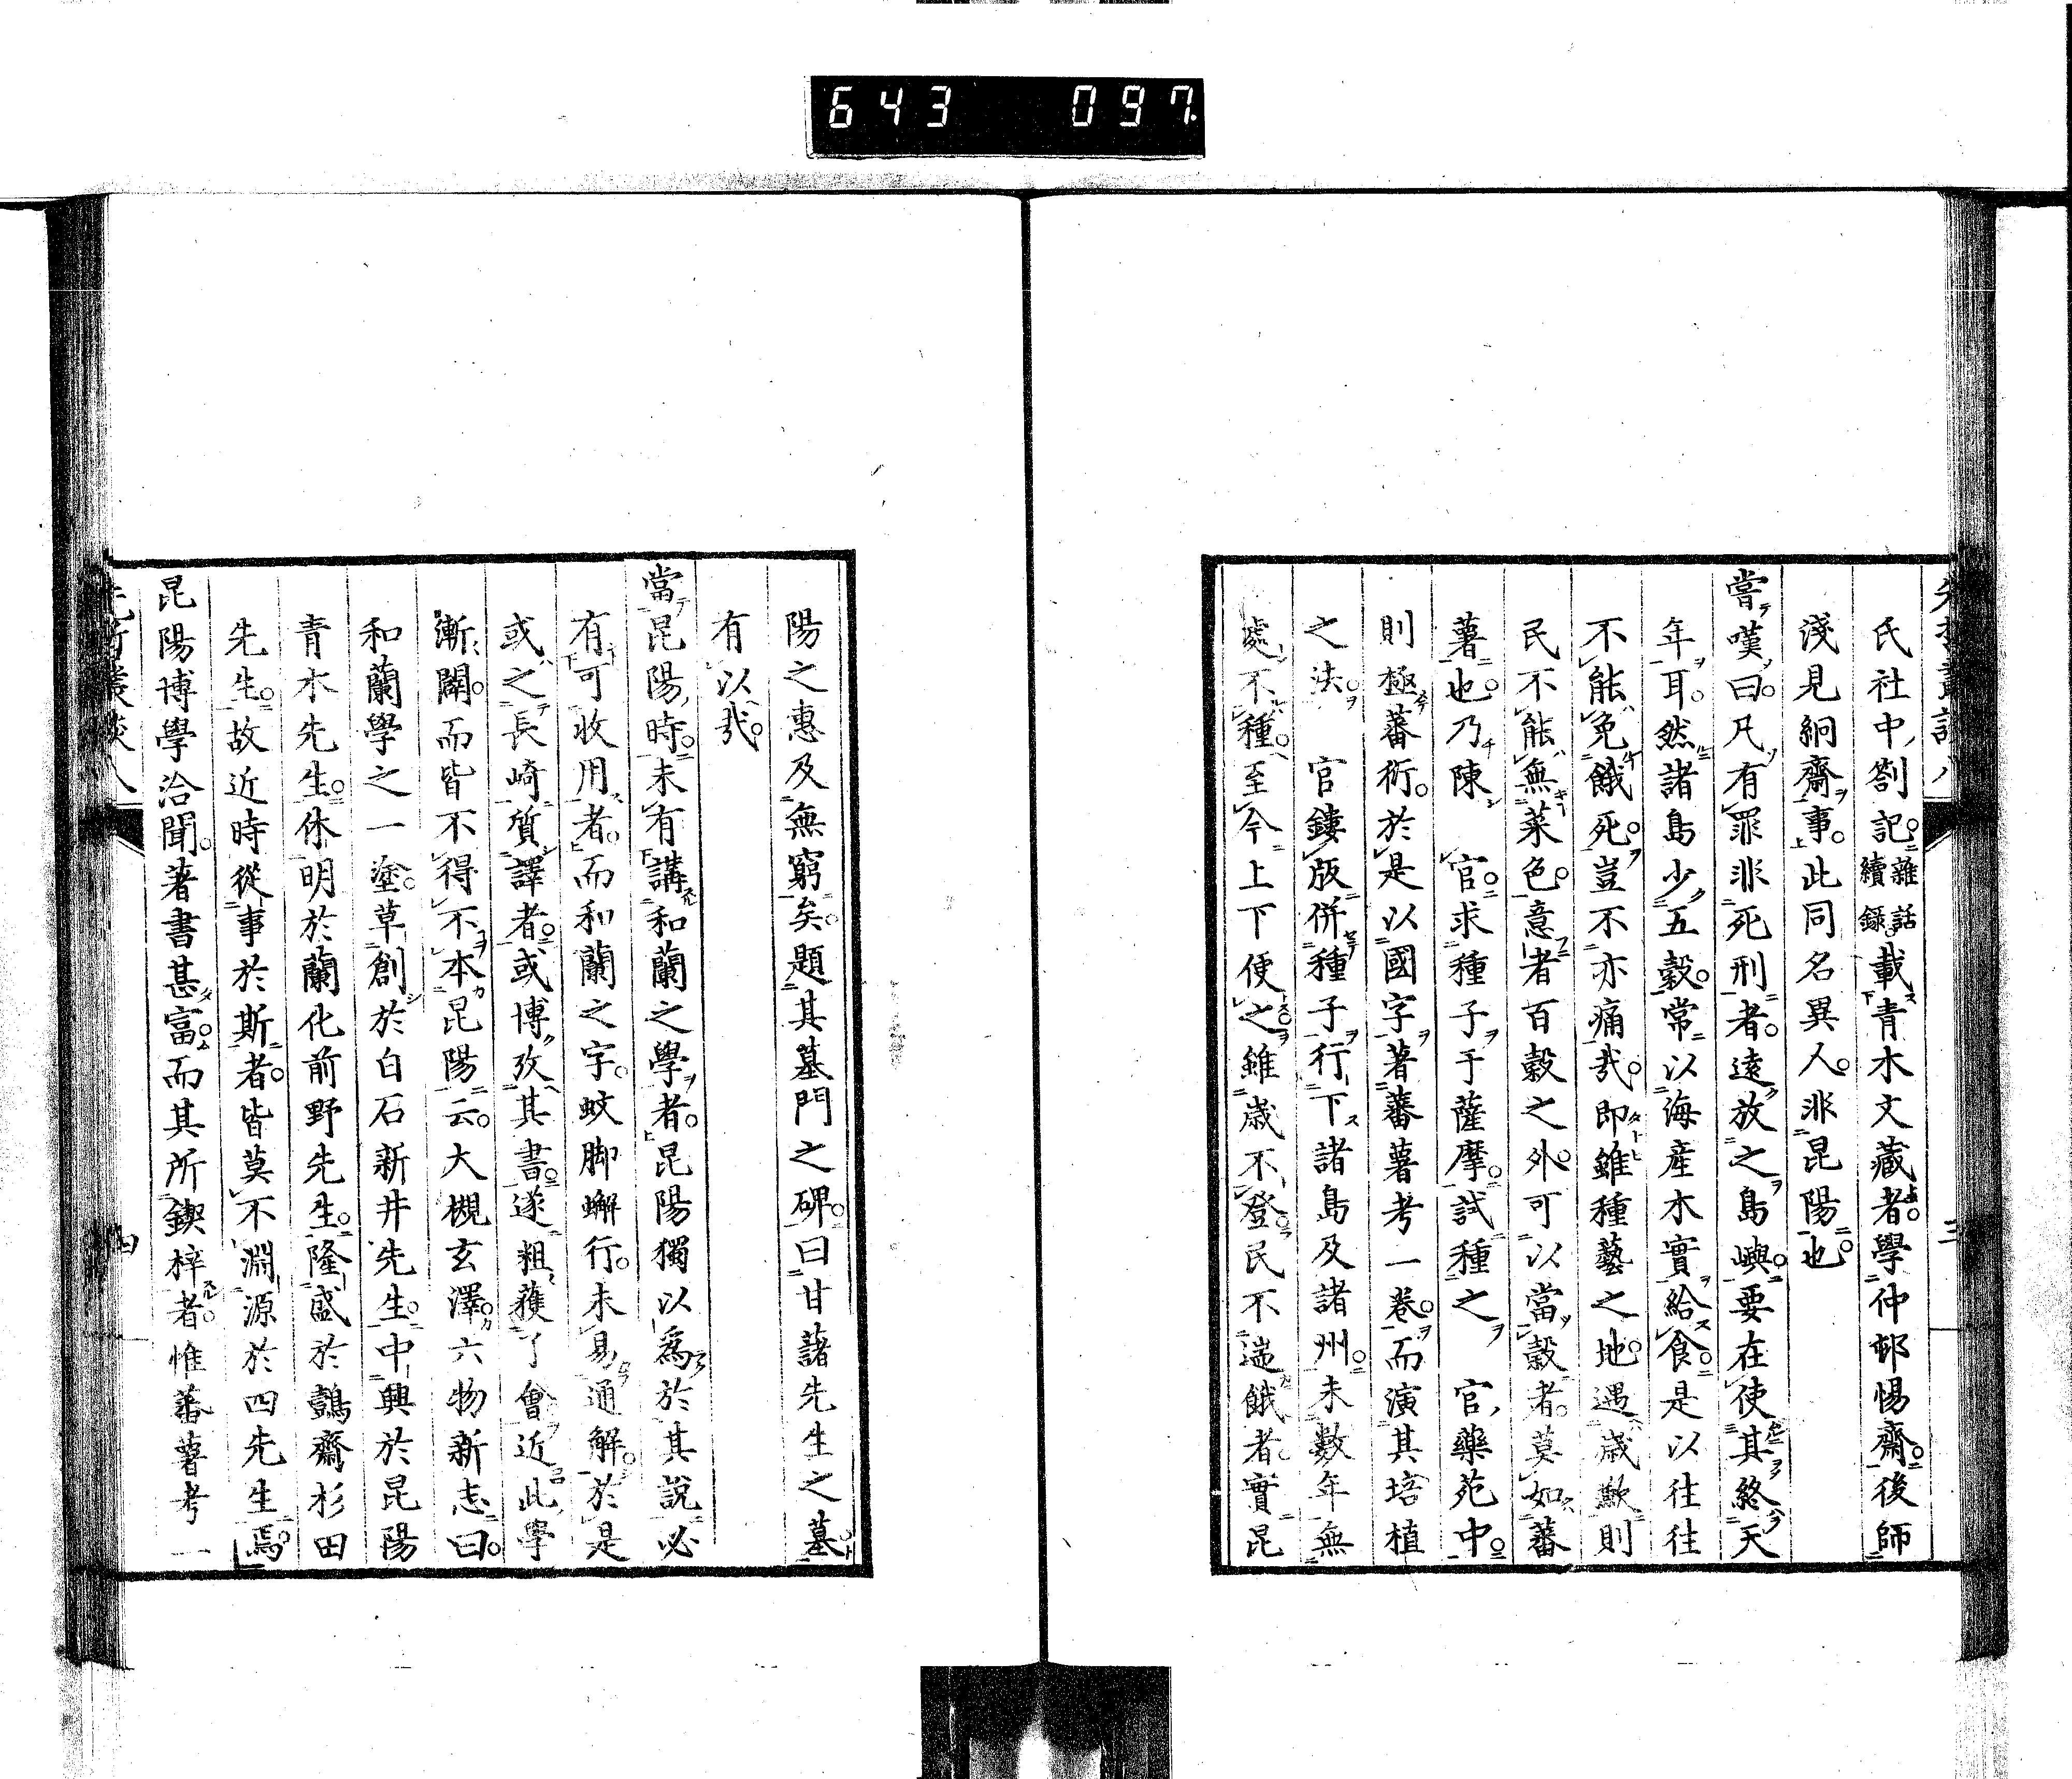 643 097
氏社中劄記雜話續錄載青木文藏者學仲邨惕齋後師
淺見絅齋事此同名異人非昆陽也
嘗嘆曰凡有罪非死刑者遠放之島嶼要在使其終天
年耳然諸島少五穀常以海産木實給食是以往往
不能免餓死豈不亦痛哉即雖種藝之地遇歲歉則
民不能無菜色意者百穀之外可以當穀者莫如蕃
薯也乃陳 官求種子于薩摩試種之 官藥苑中
則極蕃衍於是以國字著蕃薯考一卷而演其培植
之法 官鏤版併種子行下諸島及諸州未數年無
處不種至今上下便之雖歲不登民不遄餓者實昆
陽之惠及無窮矣題其墓門之碑曰甘藷先生之墓
有以哉
當昆陽時未有講和蘭之學者昆陽獨以爲於其說必
有可收用者而和蘭之字蚊脚蠏行未易通解於是
或之長崎質譯者或博攷其書遂粗獲了會近此學
漸闢而皆不得不本昆陽云大槻玄澤六物新志曰
和蘭學之一塗草創於白石新井先生中興於昆陽
青木先生休明於蘭化前野先生隆盛於鷧齋杉田
先生故近時從事於斯者皆莫不淵源於四先生焉
昆陽博學洽聞著書甚富而其所鍥梓者惟蕃薯考一